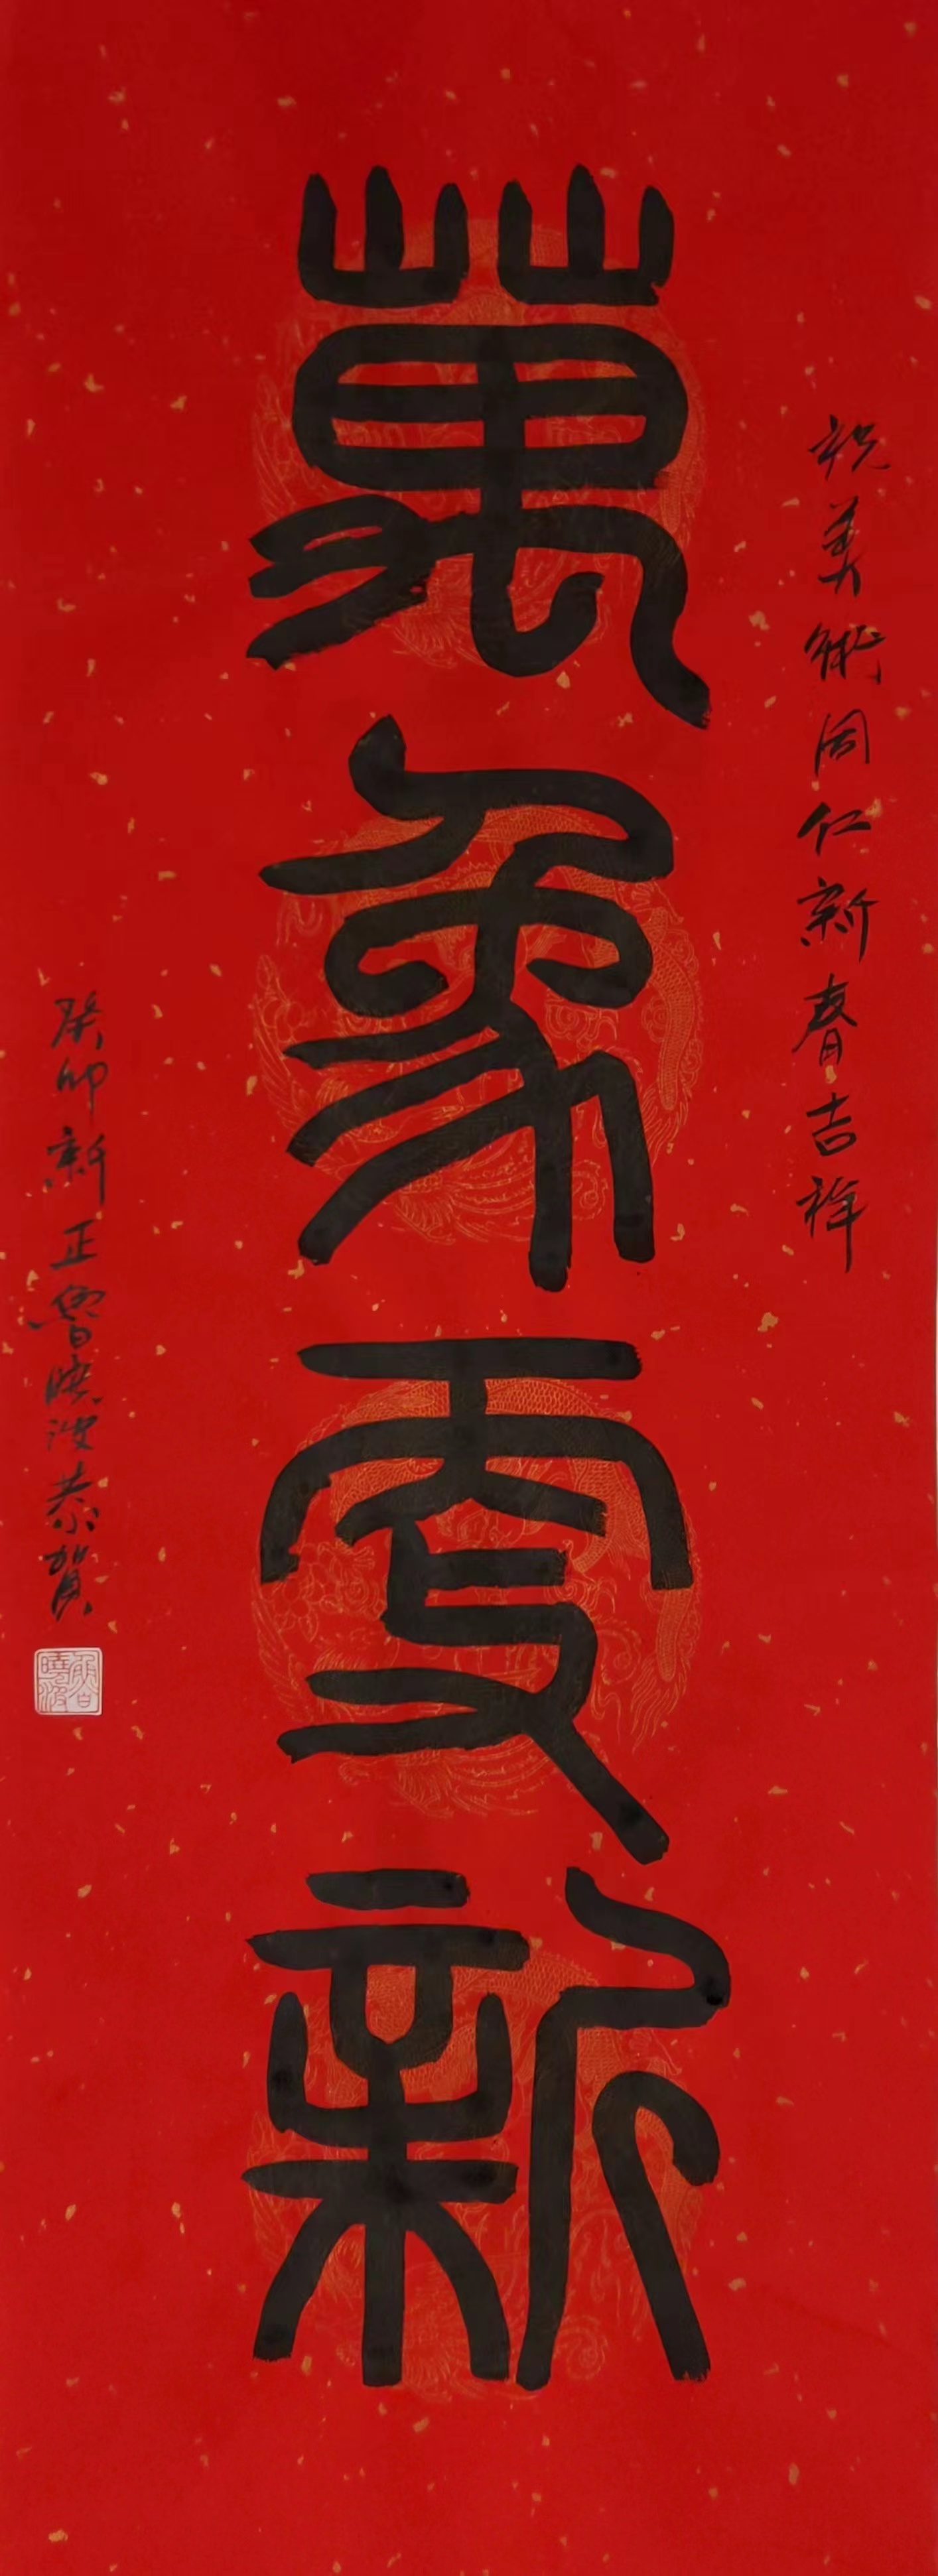 祝美術同仁新春吉祥
萬象更新
癸卯新正魯曉波恭賀
魯曉波